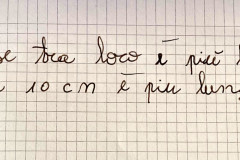 se tra loro è più l
10 cm è piu lun